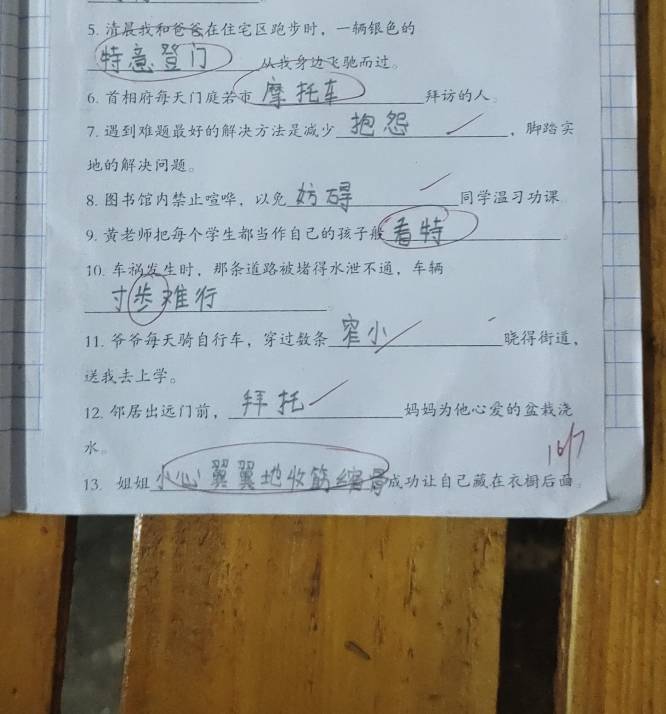 5. 清晨我和爸爸在住宅区跑步时，一辆银色的
特意登门从我身边飞驰而过。
6. 首相府每天门庭若市摩托车拜访的人。
7. 遇到难题最好的解决方法是减少抱怨，脚踏实
地的解决问题。
8. 图书馆内禁止喧哗，以免妨碍同学温习功课
9. 黄老师把每个学生都当作自己的孩子般看特。
10. 车祸发生时，那条道路被堵得水泄不通，车辆
寸步难行
11. 爷爷每天骑自行车，穿过数条窄小晓得街道，
送我去上学。
12. 邻居出远门前，拜托妈妈为他心爱的盆栽浇
水。
13. 姐姐小心翼翼地收筋缩骨成功让自己藏在衣橱后面。